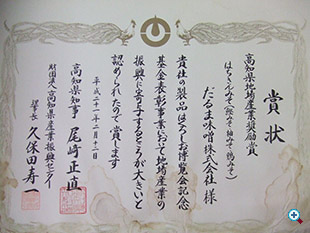 賞状
高知県地場産業奨励賞
はちきんみそ(鰹みそ・紬みそ・鶏みそ)
だるま味噌株式会社 様
貴社の製品はよさこい博覧会記念
基金表彰事業において地場産業の
振興に寄与するところが大きいと
認められたので賞します
平成二十一年二月十二日
高知県知事 尾﨑正直
財団法人高知県産業振興センター
理事長 久保田寿一